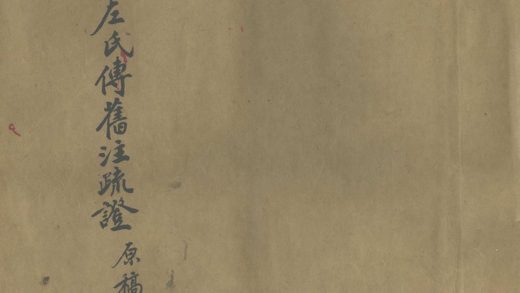 左氏傳舊注疏證 原稿